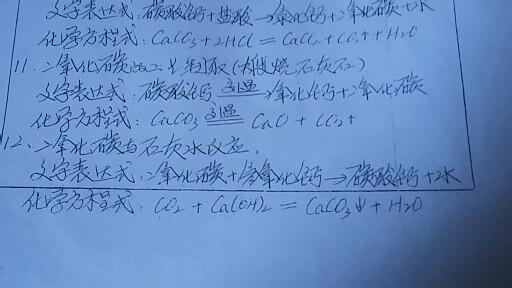 文字表达式:碳酸钙+盐酸→氯化钙+二氧化碳+水
化学方程式:CaCO₃+2HCl=CaCl₂+CO₂↑+H₂O
11.二氧化碳工业制取(煅烧石灰石)
文字表达式:碳酸钙 高温 氧化钙+二氧化碳
化学方程式:CaCO₃ 高温 CaO+CO₂↑
12.二氧化碳与石灰水反应.
文字表达式:二氧化碳+氢氧化钙→碳酸钙+水
化学方程式:CO₂+Ca(OH)₂=CaCO₃↓+H₂O